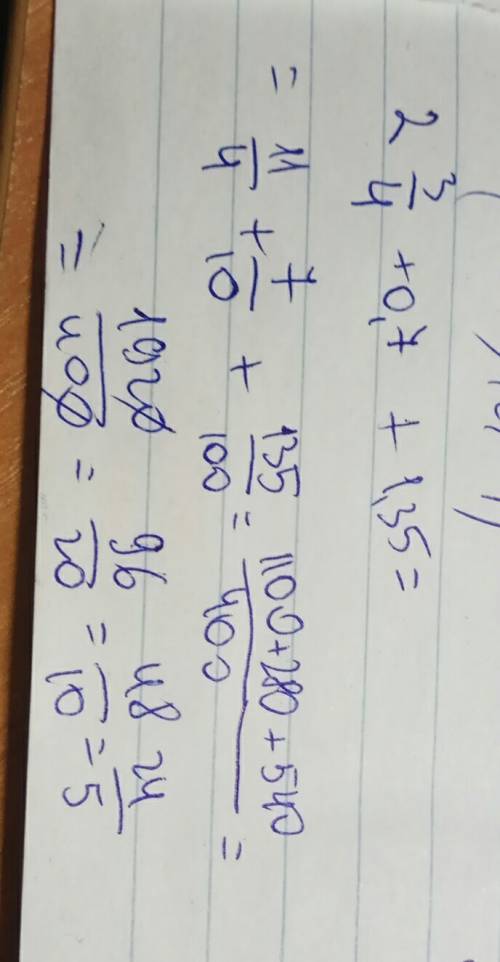 2 3/4 + 0,7 + 1,35 =
= 11/4 + 7/10 + 135/100 = (1100+280+540)/400 =
= 1920/400 = 96/20 = 48/10 = 24/5